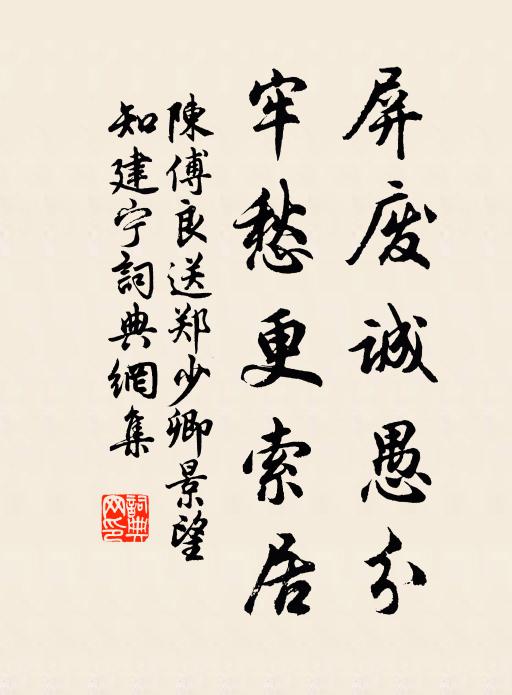 屏废诚愚分
牢愁更索居
陳傅良送郑少卿景望
知建宁詞典網集
詞典網印